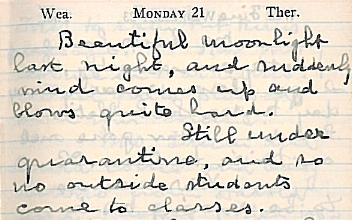 Wea. MONDAY 21 Ther.
Beautiful moonlight
last night, and suddenly
wind comes up and
blows quite hard.
Still under
quarantine, and so
no outside students
come to classes.